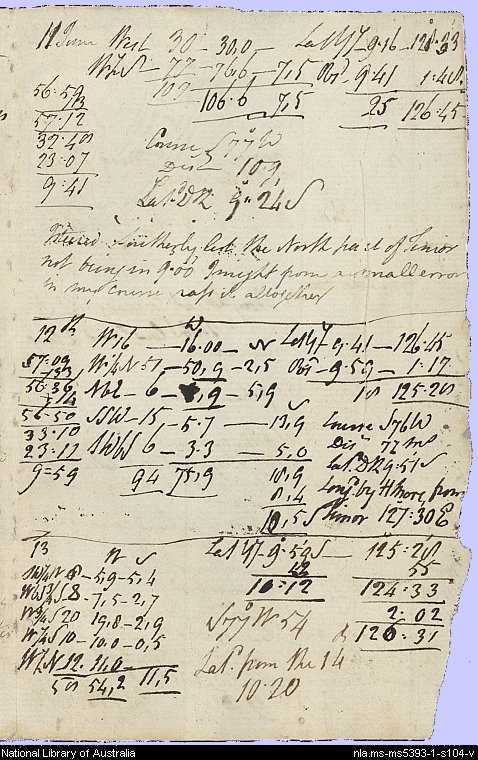 11 June West 30 - 30,0 - Lat Y 9..16 - 128.03
W¼S - 77 - 76,6 - 7,5 Obs 9.41 1.48
107 106.6 7,5 25 126.45
56.59
13
57.12
32.48
23.07
9.41
Course S 77 W
Dist 109
Lat DR 9.24 S
Steered Southerly lest the North part of Timor
not being in 9.00 I might from a small error
in my Course pass it altogether
12th W W
W 16 - 16.00 - N Lat Y 9.41 - 126.45
57.09 W¼N 51 - 50,9 - 2,5 Obs - 9.59 - 1.17
56.36 NbE - 6 - 1,2 - 5,9 18 125.28
14 S
56.50 SSW - 15 - 5.7 - 13,9 Course S 76 W
33.10 6 - 3.3 - 5,0 Dis 77 ms
23.17 94 75,9 18,9 Lat DR 9.51 S
9=59 8,4 Long by H more from
10,5 S Timor 127.30 E
13 W S Lat Y 9.59 S - 125.28
8 - 5,9 - 5,4 55
8 - 7,5 - 2,7 10.12 124.33
20 19,8 - 2,9 2.02
10 - 10,0 - 0,5 S 77 W 54 126.31
12. 11,0 - Lat. from the 14
58 54,2 11,5 10.20
National Library of Australia nla.ms-ms5393-1-s104-v